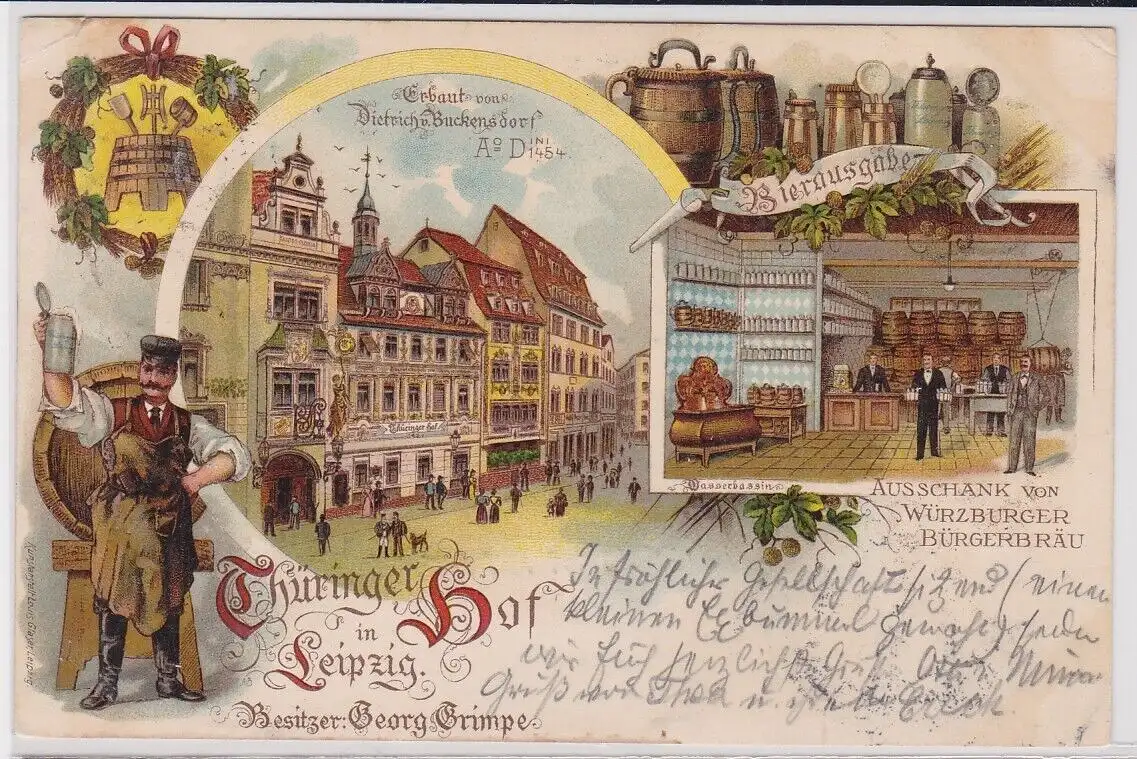 Erbaut von
Dietrich v. Buckensdorf
Aº DINI 1454.
Bierausgabe
Thüringer Hof
Wasserbassin
AUSSCHANK VON
WÜRZBURGER
BÜRGERBRÄU
Thüringer Hof
in
Leipzig.
Besitzer: Georg Grimpe.
In fröhlicher Gesellschaft sitzend (einen
kleinen Bummel gemacht) senden
wir Euch herzlichst Gruß
Gruß von u.